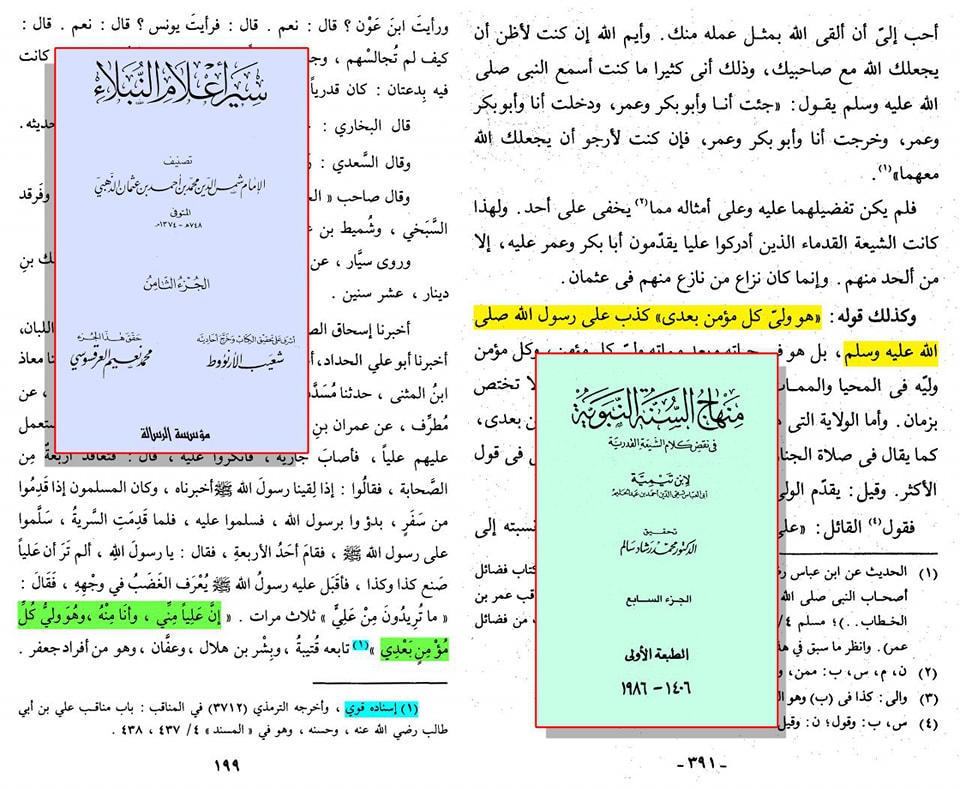 أحب إلىّ أن ألقى الله بمثل عمله منك. وأيم الله إن كنت لأظن أن
يجعلك الله مع صاحبيك، وذلك أنى كثيرا ما كنت أسمع النبى صلى
الله عليه وسلم يقول: «جئت أنا وأبو بكر وعمر، ودخلت أنا وأبو بكر
وعمر، وخرجت أنا وأبو بكر وعمر، فإن كنت لأرجو أن يجعلك الله
معهما»(١).
فلم يكن تفضيلهما عليه وعلى أمثاله مما(٢) يخفى على أحد. ولهذا
كانت الشيعة القدماء الذين أدركوا عليا يقدّمون أبا بكر وعمر عليه، إلا
من ألحد منهم. وإنما كان نزاع من نازع منهم فى عثمان.
وكذلك قوله: «هو ولىّ كل مؤمن بعدى» كذب على رسول الله صلى
الله عليه وسلم، بل هو فى حياته وبعد مماته ولىّ كل مؤمن، وكل مؤمن
وليّه فى المحيا والممات
لا تختص
بزمان. وأما الولاية التى
بعدى،
كما يقال فى صلاة الجنا
فى قول
الأكثر. وقيل: يقدّم الولى
فقول(٤) القائل: «على
نسبته إلى
(١) الحديث عن ابن عباس رض
كتاب فضائل
أصحاب النبى صلى الله
قب عمر بن
الخطاب . .)؛ مسلم ٤/
من فضائل
عمر). وانظر ما سبق في هذ
(٢) ن، م، س، ب: ممن، و
(٣) والى: كذا فى (ب) وهو ال
(٤) س، ب: وقول؛ ن: وقيل
-٣٩١-
منهاج السنة النبوية
في نقض كلام الشيعة القدرية
لابن تيمية
أبي العباس تقي الدين أحمد بن عبد الحليم
تحقيق
الدكتور محمد رشاد سالم
الجزء السابع
الطبعة الأولى
١٤٠٦ - ١٩٨٦
ورأيتَ ابنَ عَوْن ؟ قال : نعم . قال : فرأيتَ يونس ؟ قال : نعم . قال :
كيف لم تُجالسْهم ، وجا
كانت
فيه بِدعتان : كان قدرياً
قال البخاري :
حديثه.
وقال السَّعدي :
وقال صاحب «
وفَرقد
السَّبَخي ، وشُميط بن ع
وروى سيَّار ، عن
ك بنِ
دينار ، عشر سنين .
أخبرنا إسحاق الص
اللبان،
أخبرنا أبو علي الحداد،
معاذ
ابنُ المثنى ، حدثنا مُسَدَّ
، عن
مُطَرِّف ، عن عمران بنِ
ستعمل
عليهم علياً ، فأصابَ جارية ، فأنكروا عليه ، قال : فتعاقد أربعةٌ مِن
الصَّحابة ، فقالُوا : إذا لقِينا رسولَ الله ﷺ أخبرناه ، وكان المسلمون إذا قَدِمُوا
من سَفَرٍ ، بدؤ وا برسول الله ، فسلموا عليه ، فلما قَدِمَتِ السريةُ ، سَلَّموا
على رسول الله ﷺ ، فقامَ أَحَدُ الأربعةِ ، فقال : يا رسولَ اللهِ ، ألم تَرَ أن عَلياً
صَنع كذا وكذا ، فأقبَل عليه رسولُ الله ﷺ يُعْرَف الغَضَبُ في وجهِهِ ، فَقَالَ :
« ما تُرِيدُونَ مِنْ عَلِيٍّ » ثلاث مرات . « إنَّ عَلِياً مِنِّي ، وأَنَا مِنْهُ ، وهُوَ وليُّ كُلِّ
مُؤْ مِنٍ بَعْدِي »(١) تابعه قُتيبةُ ، وبِشْر بن هلال ، وعفَّان ، وهو من أفراد جعفر .
(١) إسناده قوي ، وأخرجه الترمذي (٣٧١٢) في المناقب : باب مناقب علي بن أبي
طالب رضي الله عنه ، وحسنه ، وهو في « المسند » ٤/ ٤٣٧ ، ٤٣٨ .
١٩٩
سير أعلام النبلاء
تصنيف
الإمام شمس الدين محمد بن أحمد بن عثمان الذهبي
المتوفى
٧٤٨هـ - ١٣٧٤م
الجزء الثامن
أشرف على تحقيق الكتاب وخرج أحاديثه
شعيب الأرنؤوط
حقق هذا الجزء
محمد نعيم العرقسوسي
مؤسسة الرسالة